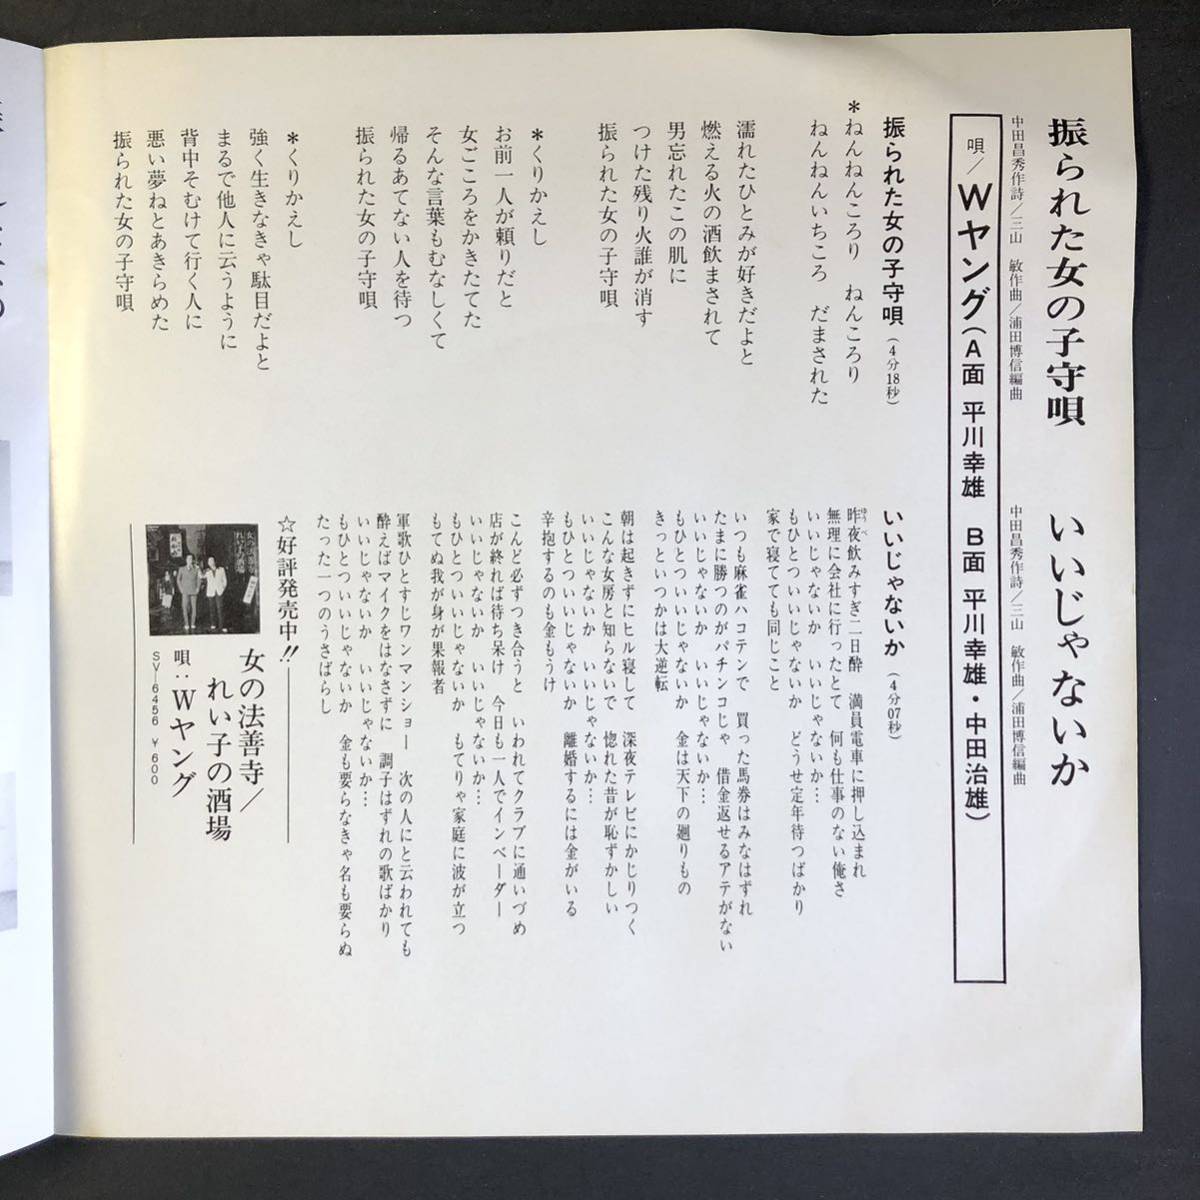 振られた女の子守唄
中田昌秀作詩/三山 敏作曲/浦田博信編曲
いいじゃないか
中田昌秀作詩/三山 敏作曲/浦田博信編曲
唄/Wヤング(A面 平川幸雄 B面 平川幸雄・中田治雄)
振られた女の子守唄(4分18秒)
*ねんねんころり ねんころり
ねんねんいちころ だまされた
濡れたひとみが好きだよと
燃える火の酒飲まされて
男忘れたこの肌に
つけた残り火誰が消す
振られた女の子守唄
*くりかえし
お前一人が頼りだと
女ごころをかきたてた
そんな言葉もむなしくて
帰るあてない人を待つ
振られた女の子守唄
*くりかえし
強く生きなきゃ駄目だよと
まるで他人に云うように
背中そむけて行く人に
悪い夢ねとあきらめた
振られた女の子守唄
いいじゃないか(4分07秒)
昨夜飲みすぎ二日酔 満員電車に押し込まれ
無理に会社に行ったとて 何も仕事のない俺さ
いいじゃないか いいじゃないか…
もひとついいじゃないか どうせ定年待つばかり
家で寝てても同じこと
いつも麻雀ハコテンで 買った馬券はみなはずれ
たまに勝つのがパチンコじゃ 借金返せるアテがない
いいじゃないか いいじゃないか…
もひとついいじゃないか 金は天下の廻りもの
きっといつかは大逆転
朝は起きずにヒル寝して 深夜テレビにかじりつく
こんな女房と知らないで 惚れた昔が恥ずかしい
いいじゃないか いいじゃないか…
もひとついいじゃないか 離婚するには金がいる
辛抱するのも金もうけ
こんど必ずつき合うと いわれてクラブに通いづめ
店が終れば待ち呆け 今日も一人でインベーダー
いいじゃないか いいじゃないか…
もひとついいじゃないか もてりゃ家庭に波が立つ
もてぬ我が身が果報者
軍歌ひとすじワンマンショー 次の人にと云われても
酔えばマイクをはなさずに 調子はずれの歌ばかり
いいじゃないか いいじゃないか…
もひとついいじゃないか 金も要らなきゃ名も要らぬ
たった一つのうさばらし
☆好評発売中!!
女の法善寺/
れい子の酒場
唄:Wヤング
SV-6456 ¥600